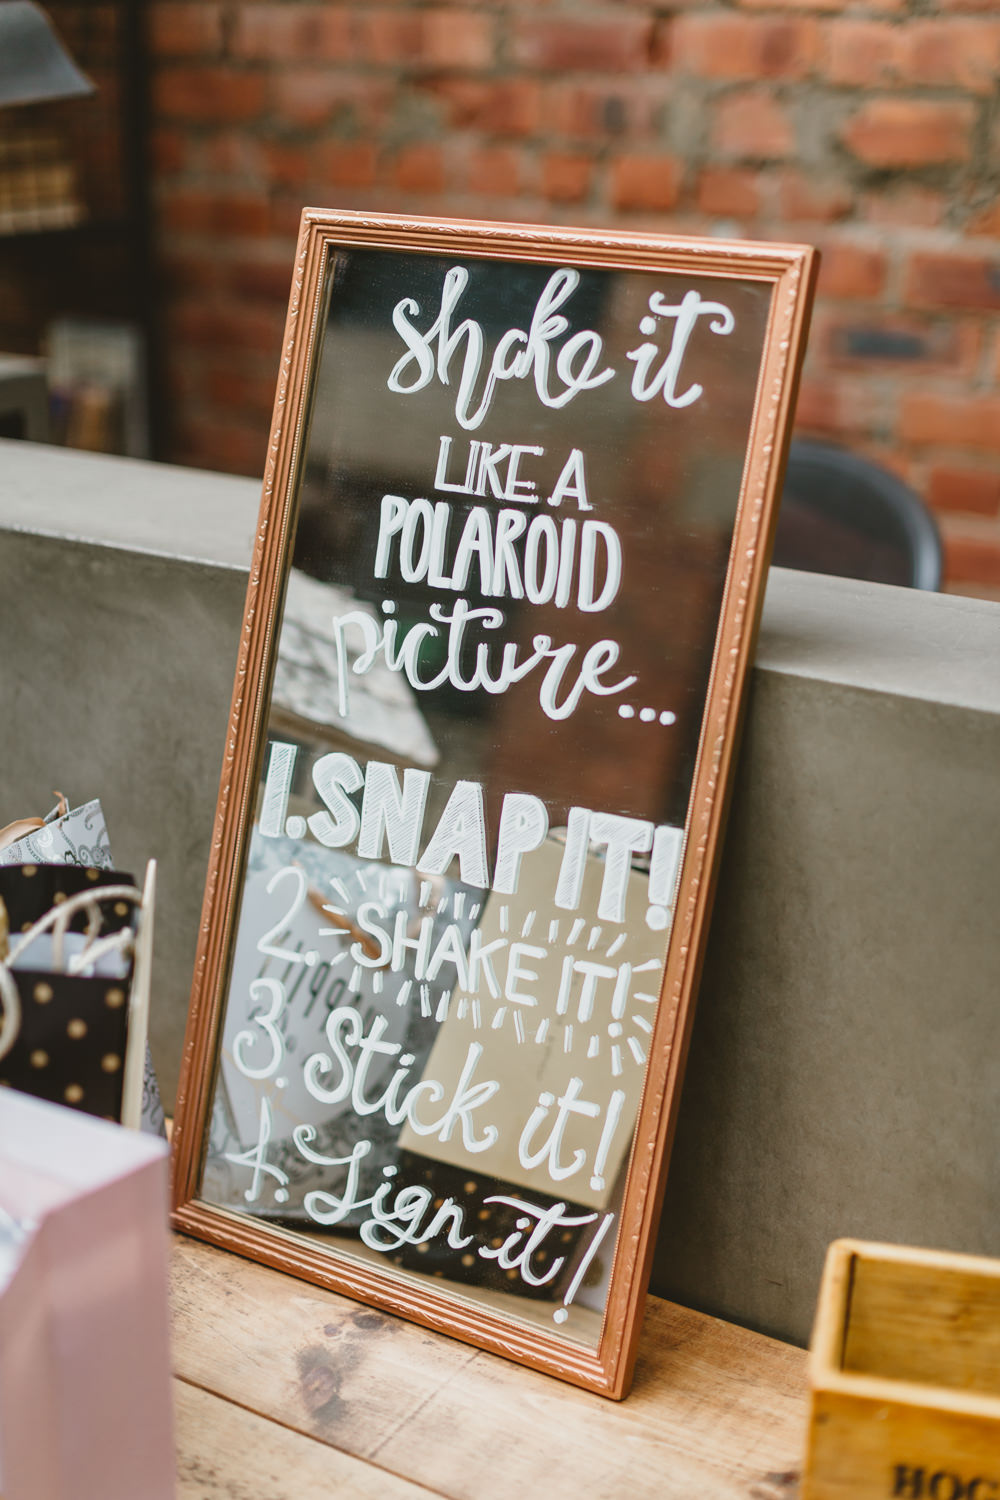 shake it
LIKE A
POLAROID
picture...
1. SNAP IT!
2. SHAKE IT!
3. Stick it!
4. Sign it!
HOG